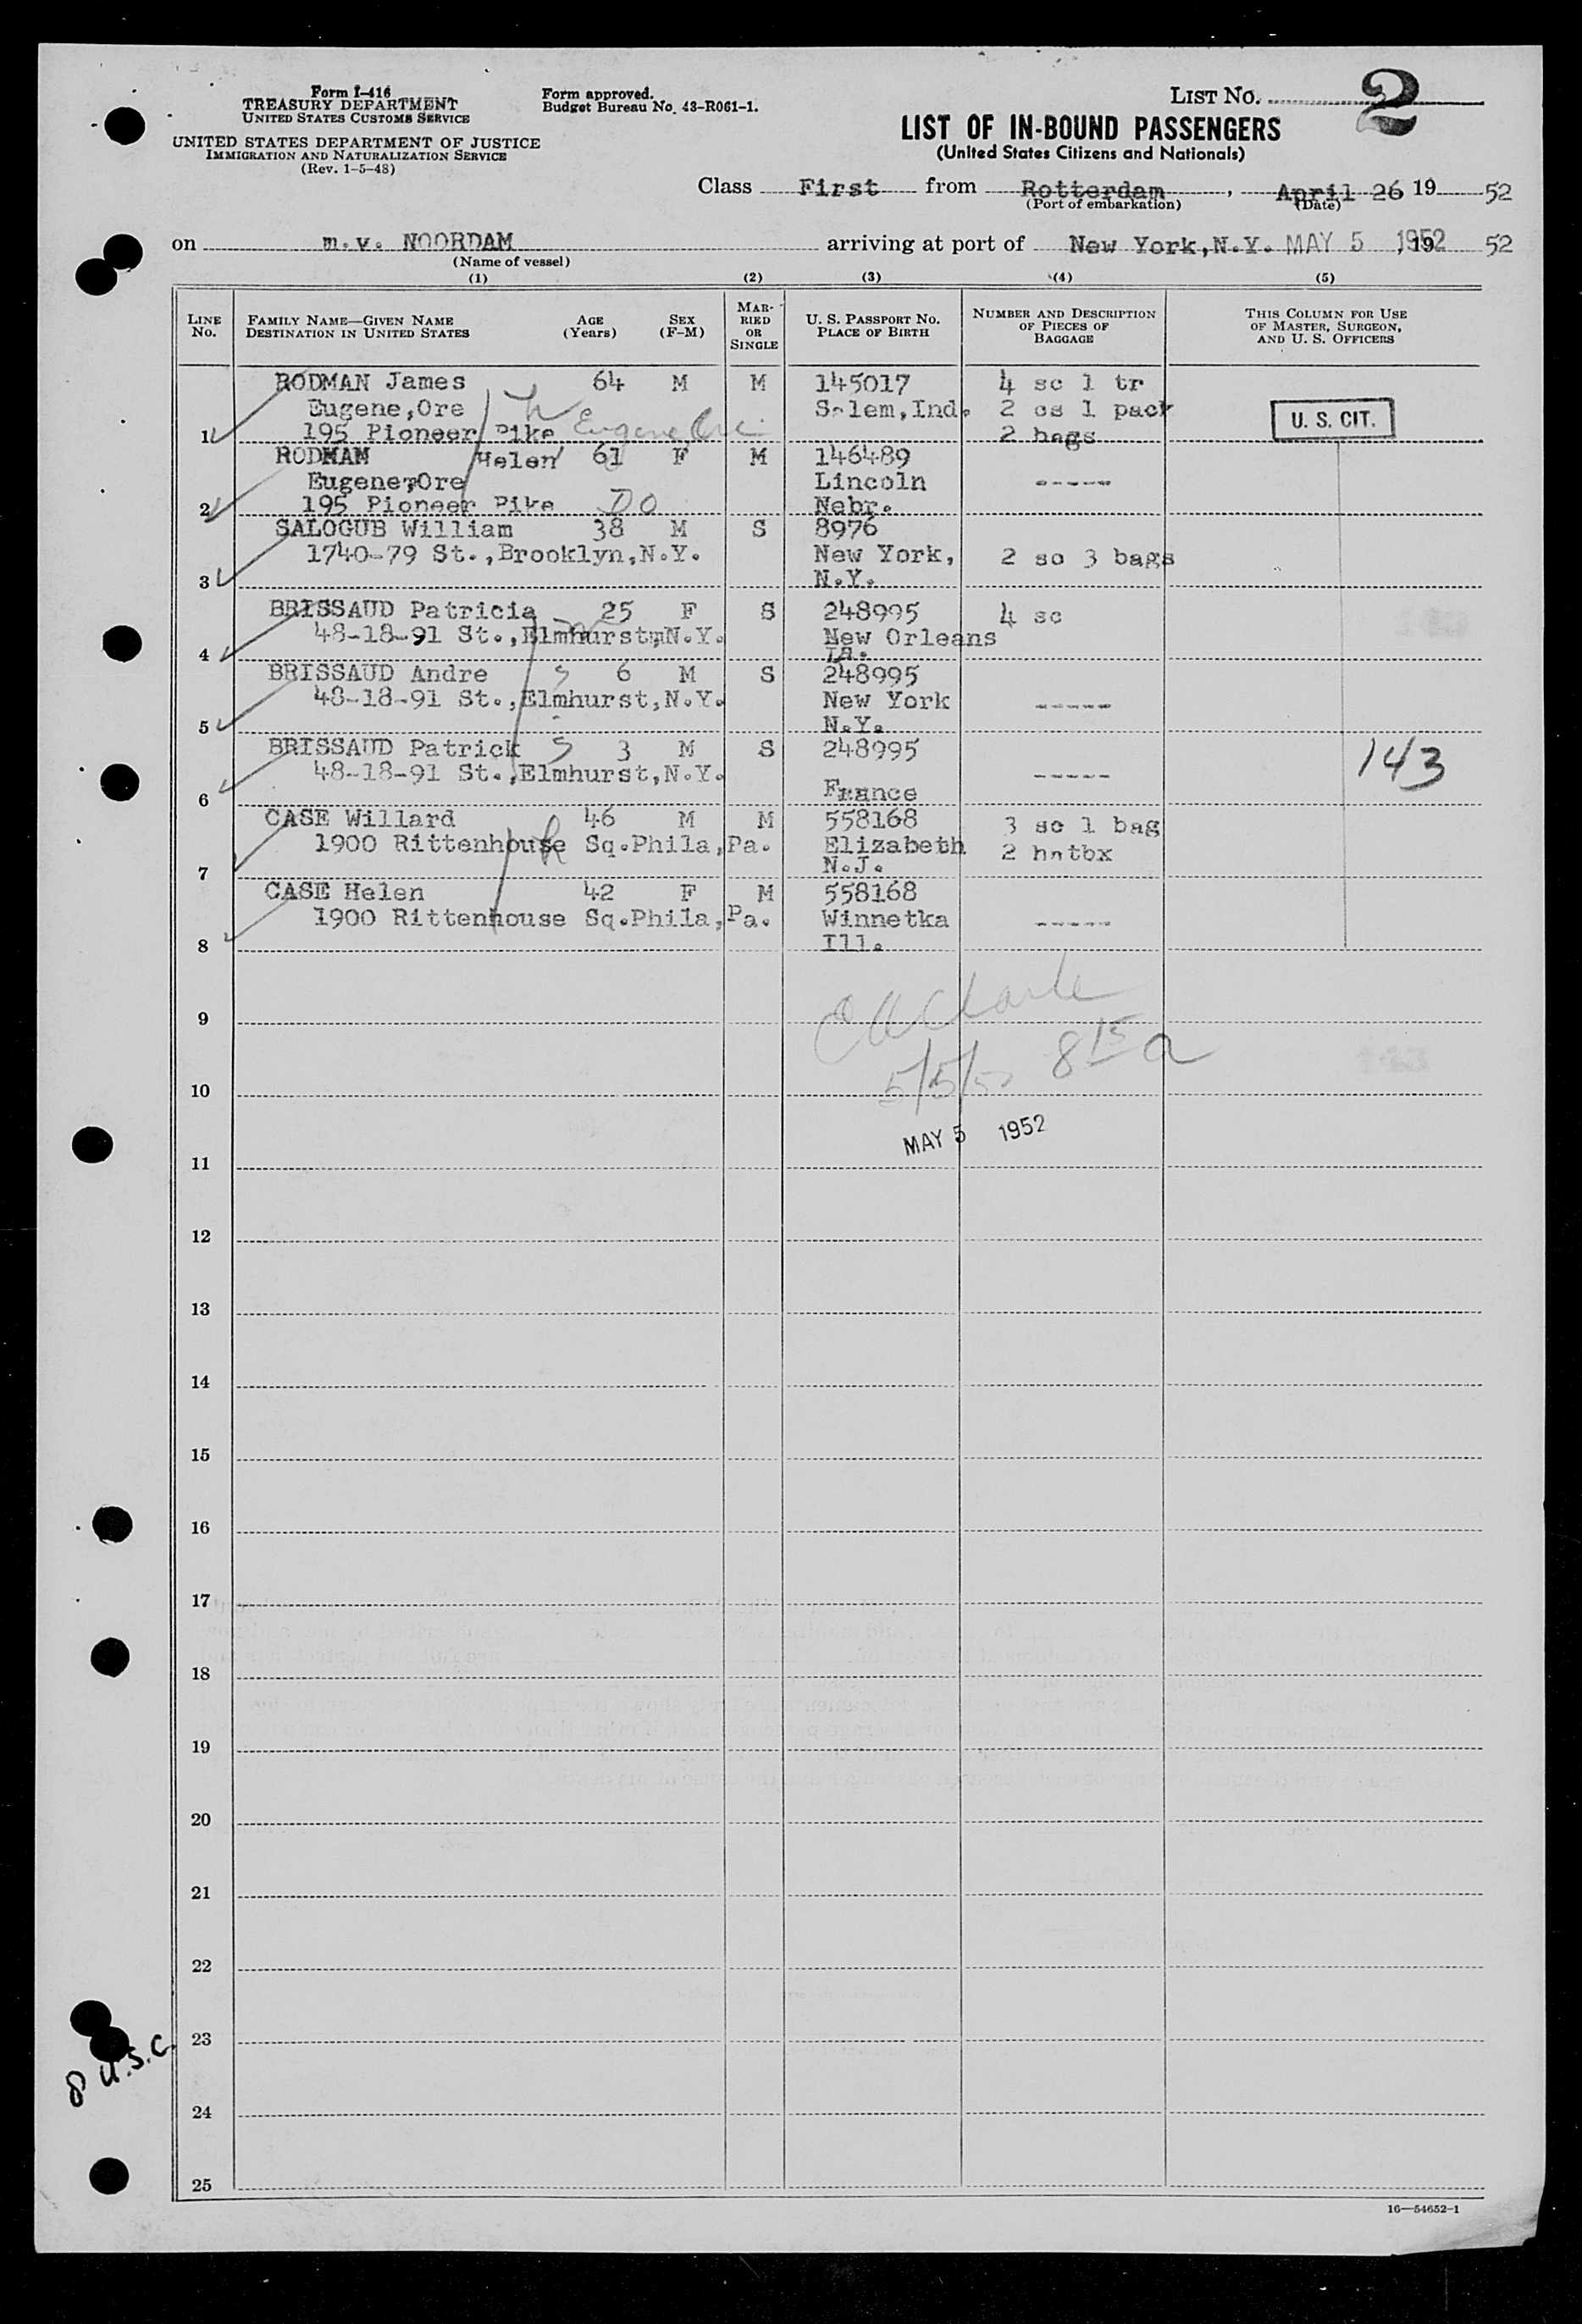 Form I-416
TREASURY DEPARTMENT
UNITED STATES CUSTOMS SERVICE
UNITED STATES DEPARTMENT OF JUSTICE
IMMIGRATION AND NATURALIZATION SERVICE
(Rev. 1-5-48)
Form approved.
Budget Bureau No. 43-R061-1.
LIST NO. 2
LIST OF IN-BOUND PASSENGERS
(United States Citizens and Nationals)
Class First from Rotterdam, April 26 19 52
(Port of embarkation) (Date)
on m.v. NOORDAM arriving at port of New York, N.Y. MAY 5 1952, 19 52
(Name of vessel)
(1) (2) (3) (4) (5)
LINE No. FAMILY NAME—GIVEN NAME DESTINATION IN UNITED STATES AGE (Years) SEX (F-M) MARRIED OR SINGLE U. S. PASSPORT NO. PLACE OF BIRTH NUMBER AND DESCRIPTION OF PIECES OF BAGGAGE THIS COLUMN FOR USE OF MASTER, SURGEON, AND U. S. OFFICERS
RODMAN James 64 M M 145017 4 sc 1 tr
Eugene,Ore Salem,Ind. 2 cs 1 pack U. S. CIT.
1 195 Pioneer Pike Eugene Ore 2 bags
RODMAN Helen 61 F M 146489
Eugene,Ore Lincoln -----
2 195 Pioneer Pike DO Nebr.
SALOGUB William 38 M S 8976
1740-79 St.,Brooklyn,N.Y. New York, 2 sc 3 bags
3 N.Y.
BRISSAUD Patricia 25 F S 248995 4 sc
48-18-91 St.,Elmhurst,N.Y. New Orleans
4 La.
BRISSAUD Andre S 6 M S 248995
48-18-91 St.,Elmhurst,N.Y. New York -----
5 N.Y.
BRISSAUD Patrick S 3 M S 248995 143
48-18-91 St.,Elmhurst,N.Y. -----
6 France
CASE Willard 46 M M 558168 3 sc 1 bag
1900 Rittenhouse Sq.Phila,Pa. Elizabeth 2 hatbx
7 N.J.
CASE Helen 42 F M 558168
1900 Rittenhouse Sq.Phila,Pa. Winnetka -----
8 Ill.
9 Clarke
5/5/52 8 15 a
10
MAY 5 1952
11
12
13
14
15
16
17
18
19
20
21
22
23
8 U.S.C.
24
25
16—54652-1